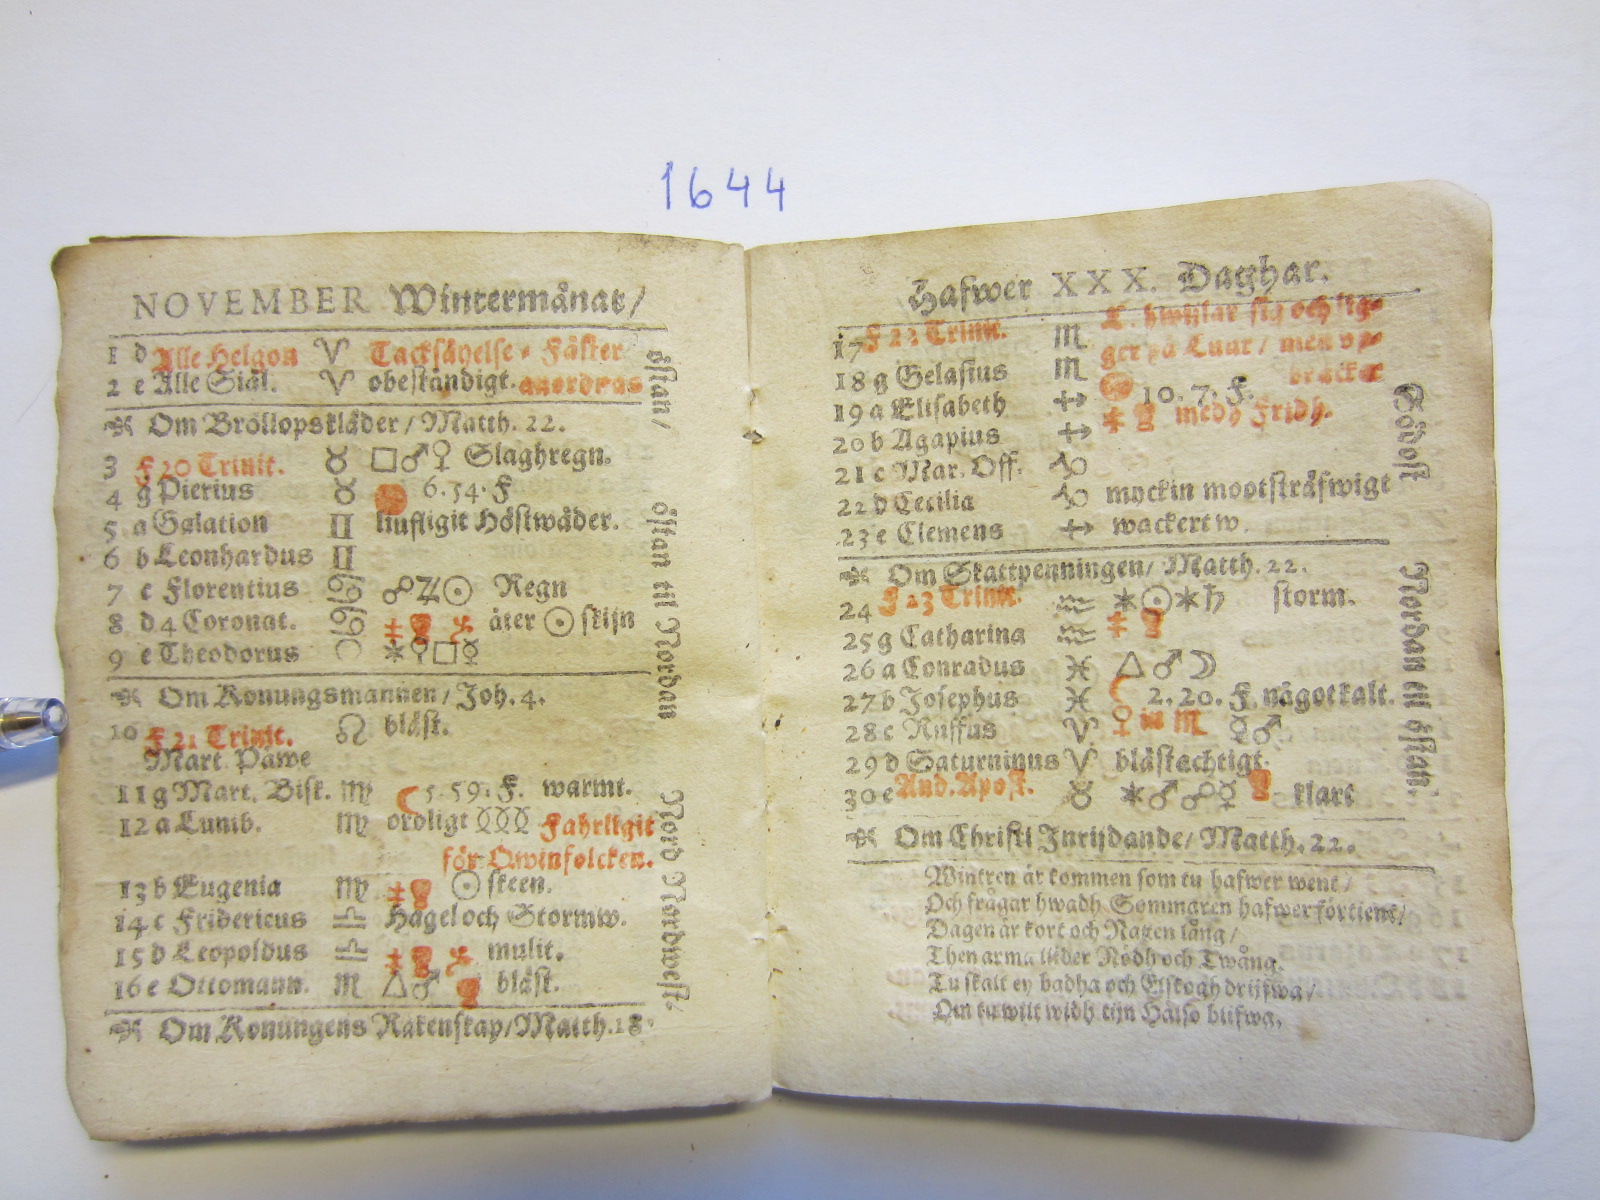 1644
NOVEMBER Wintermånat/
1 d Alle Helgon ♈ Tacksäyelse-Fäster
2 e Alle Siäl. ♈ obeständigt. anordnas
Om Bröllopskläder/Matth. 22.
3 F 20 Trinit. ♉ □♂♀ Slaghregn.
4 g Pierius ♉ 6.54. F
5 a Galation ♊ liufligit Höstwäder.
6 b Leonhardus ♊
7 c Florentius ♋ ☍♃☉ Regn
8 d 4 Coronat. ♋ åter ☉ skijn
9 e Theodorus ⚹♀□☿
Om Konungsmannen/Joh. 4.
10 F 21 Trinit. ♌ bläst.
Mart. Påwe
11 g Mart. Bisk. ♍ ☾ 5.59. F. warmt.
12 a Cunib. ♍ oroligt Fahrligit
för Qwinfolcken.
13 b Eugenia ♍ ☉ skeen.
14 c Fridericus ♎ Hagel och Stormw.
15 d Leopoldus ♎ mulit.
16 e Ottomann. ♏ △♂ bläst.
Om Konungens Räkenskap/Matth. 18.
östan/ östan til Nordan Nord Nordwest.
Hafwer XXX. Daghar.
17 F 22 Trinit. ♏ C. hwijlar sig och lig-
18 g Gelasius ♏ ger på Luur/ men op-
bräcker
19 a Elisabeth ♐ 10. 7. F.
20 b Agapius ♐ medh Fridh.
21 c Mar. Off. ♑
22 d Cecilia ♑ myckin mootsträfwigt
23 e Clemens wackert w.
Om Skattpenningen/ Matth. 22.
24 F 23 Trinit. ♒ ⚹☉⚹♄ storm.
25 g Catharina ♒
26 a Conradus ♓ △♂☽
27 b Josephus ♓ ☾ 2. 20. F. något kalt.
28 c Ruffus ♈ ♀ in ♏ ☿♂
29 d Saturninus ♈ bläst achtigt.
30 e And. Apost. ♉ ⚹♂☍☿ klart
Om Christi Inrijdande/ Matth. 22.
Wintren är kommen som tu hafwer went/
Och frågar hwadh Sommaren hafwer förtient/
Dagen är kort och Natten lång/
Then arma lijder Nödh och Twång.
Tu skalt ey badha och Elskogh drijfwa/
Om tu wilt widh tijn Hälso blifwa.
Sydost Nordan til östan.